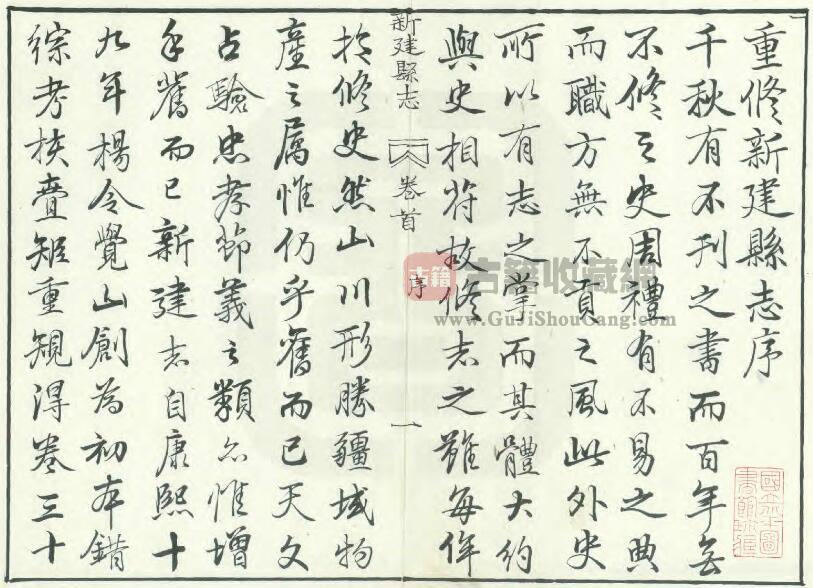 重修新建縣志序
千秋有不刊之書而百年無
不修之史周禮有不易之典
而職方無不貢之風此外史
所以有志之掌而其體大約
與史相符故修志之難每侔
新建縣志 卷首 序 一
扵修史然山川形勝疆域物
產之屬惟仍乎舊而已天文
占驗忠孝節義之類亦惟增
乎舊而已新建志自康熙十
九年楊令覺山創為初本錯
綜考核疊矩重規得卷三十
古籍
古籍收藏網
www.GuJiShouCang.com